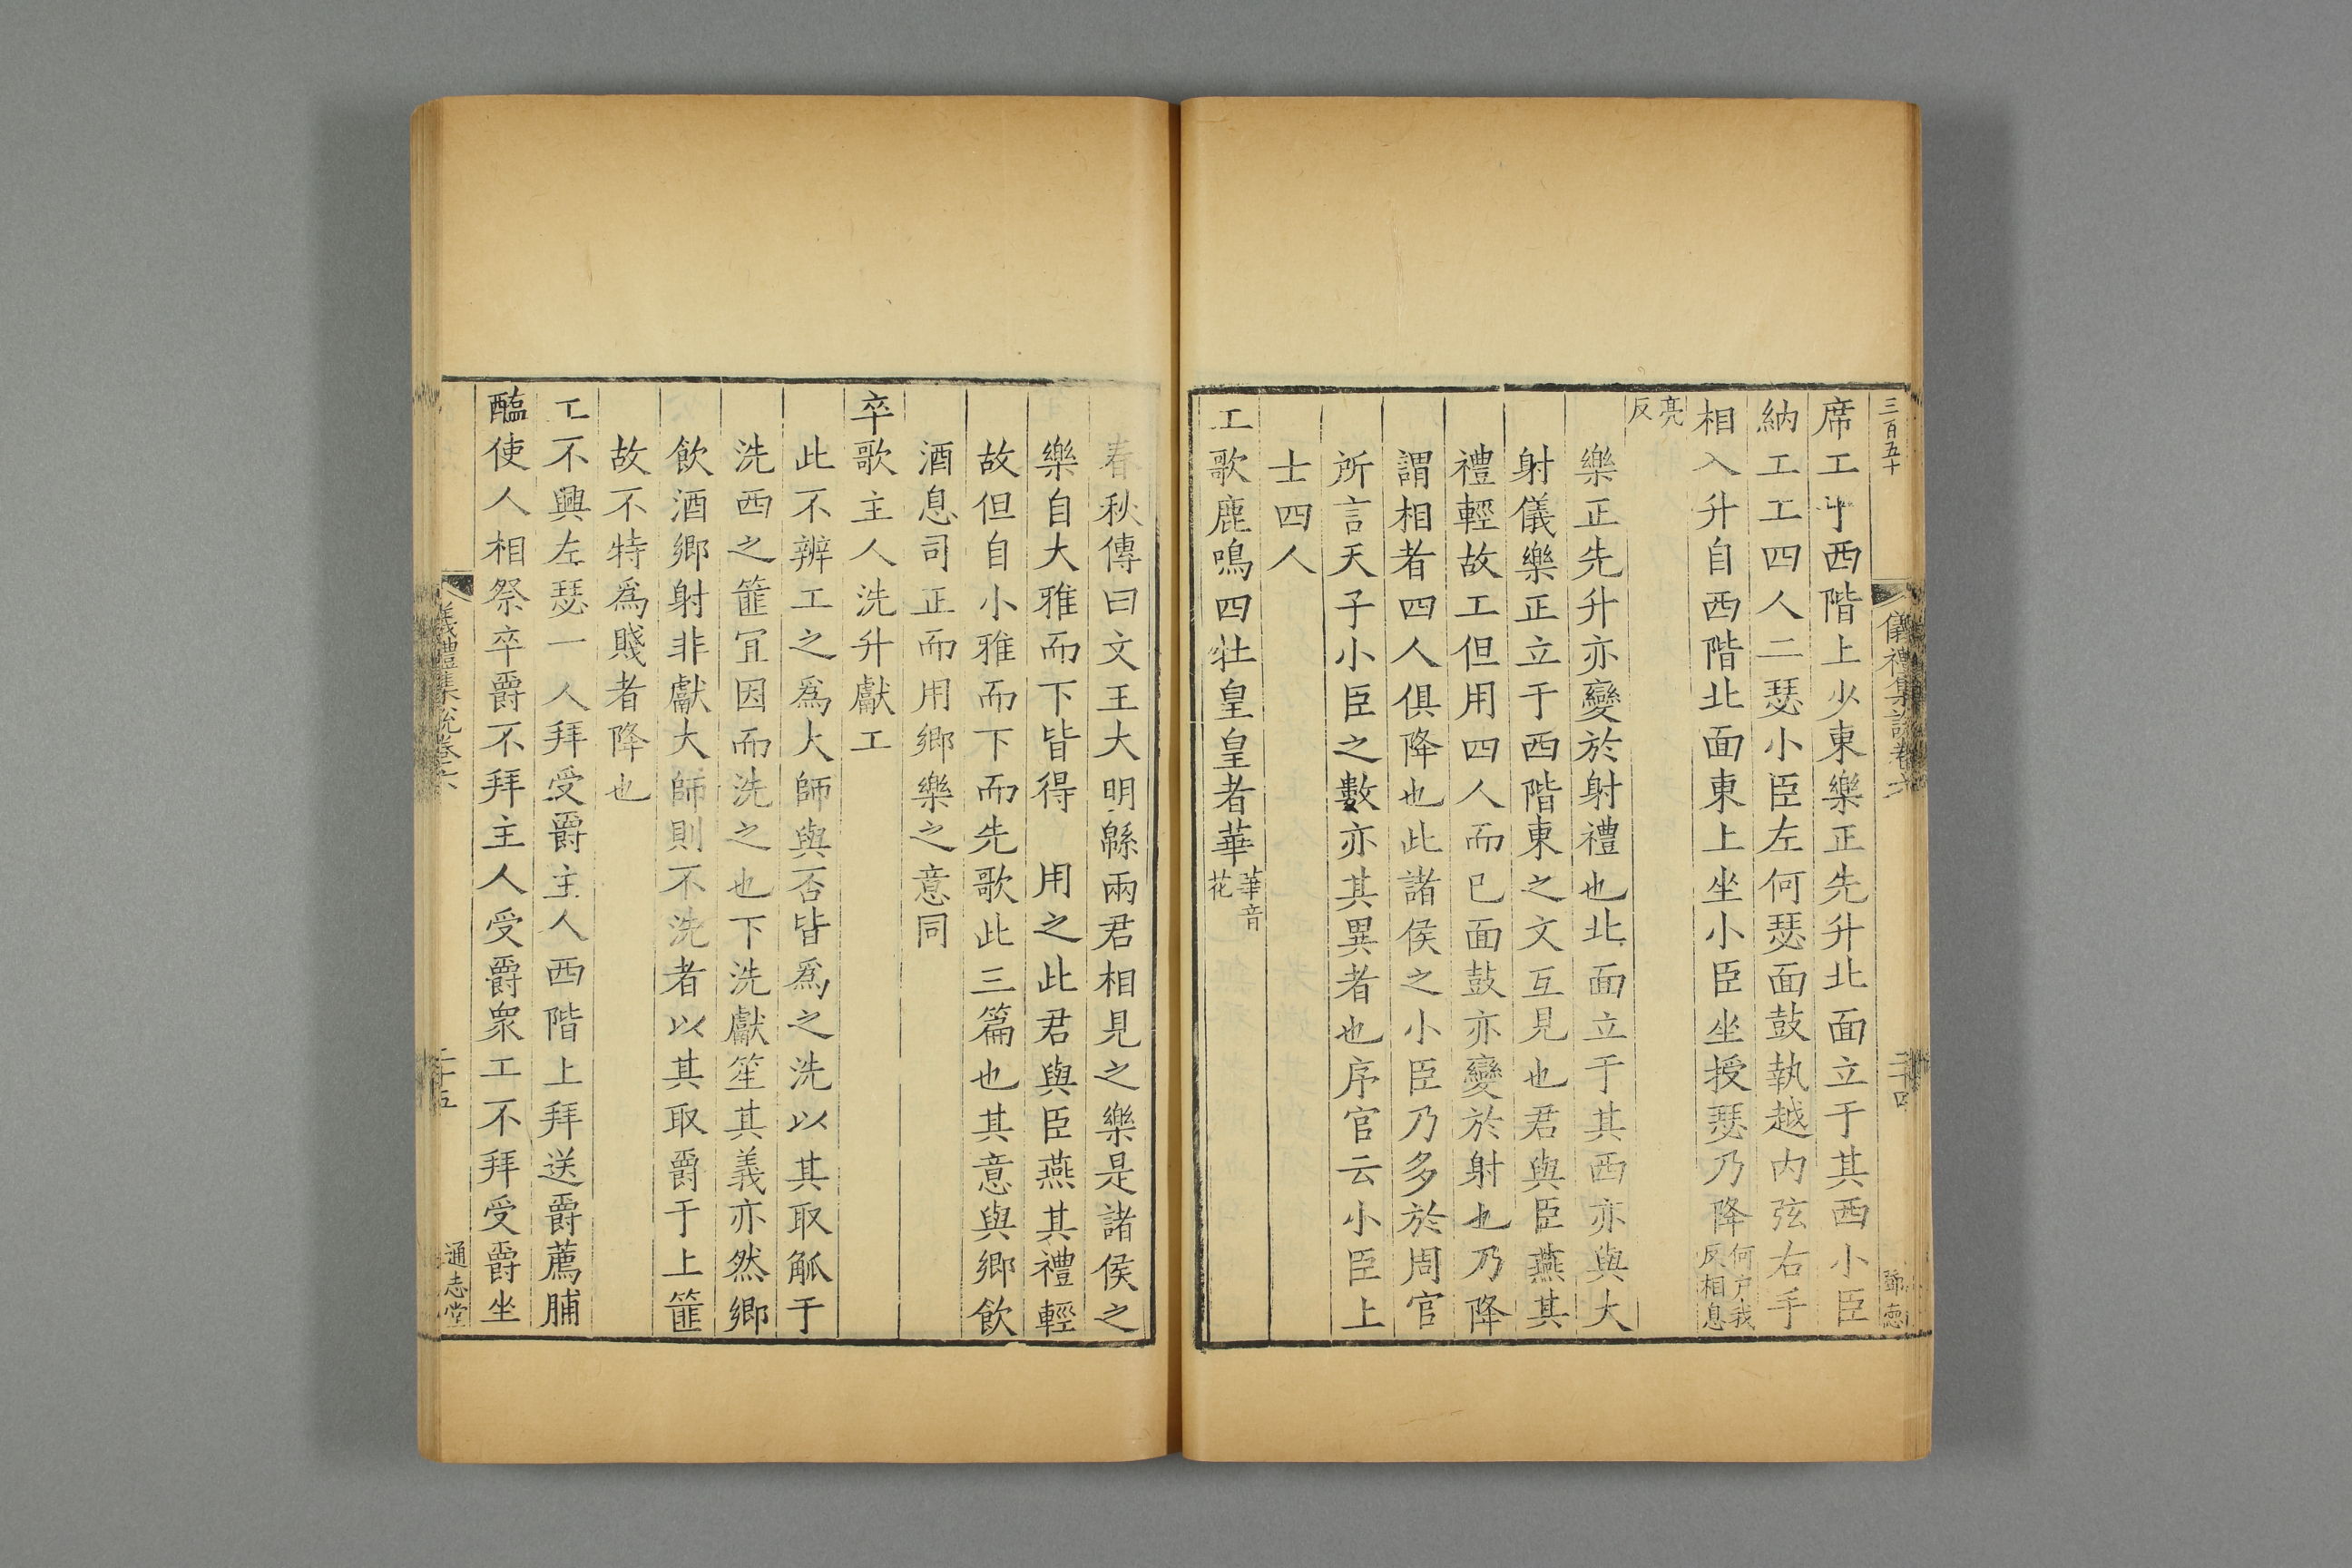 三百五十
儀禮集說卷六
二十四
席工于西階上少東樂正先升北面立于其西小臣
納工工四人二瑟小臣左何瑟面鼓執越内弦右手
相入升自西階北面東上坐小臣坐授瑟乃降何戸我反相息
亮反
樂正先升亦變於射禮也北面立于其西亦與大
射儀樂正立于西階東之文互見也君與臣燕其
禮輕故工但用四人而已面鼓亦變於射也乃降
謂相者四人俱降也此諸侯之小臣乃多於周官
所言天子小臣之數亦其異者也序官云小臣上
士四人
工歌鹿鳴四牡皇皇者華華音花
春秋傳曰文王大明緜兩君相見之樂是諸侯之
樂自大雅而下皆得 用之此君與臣燕其禮輕
故但自小雅而下而先歌此三篇也其意與鄉飲
酒息司正而用鄉樂之意同
卒歌主人洗升獻工
此不辨工之爲大師與否皆爲之洗以其取觚于
洗西之篚冝因而洗之也下洗獻笙其義亦然鄉
飲酒鄉射非獻大師則不洗者以其取爵于上篚
故不特爲賤者降也
工不興左瑟一人拜受爵主人西階上拜送爵薦脯
醢使人相祭卒爵不拜主人受爵衆工不拜受爵坐
儀禮集說卷六
二十五
通志堂